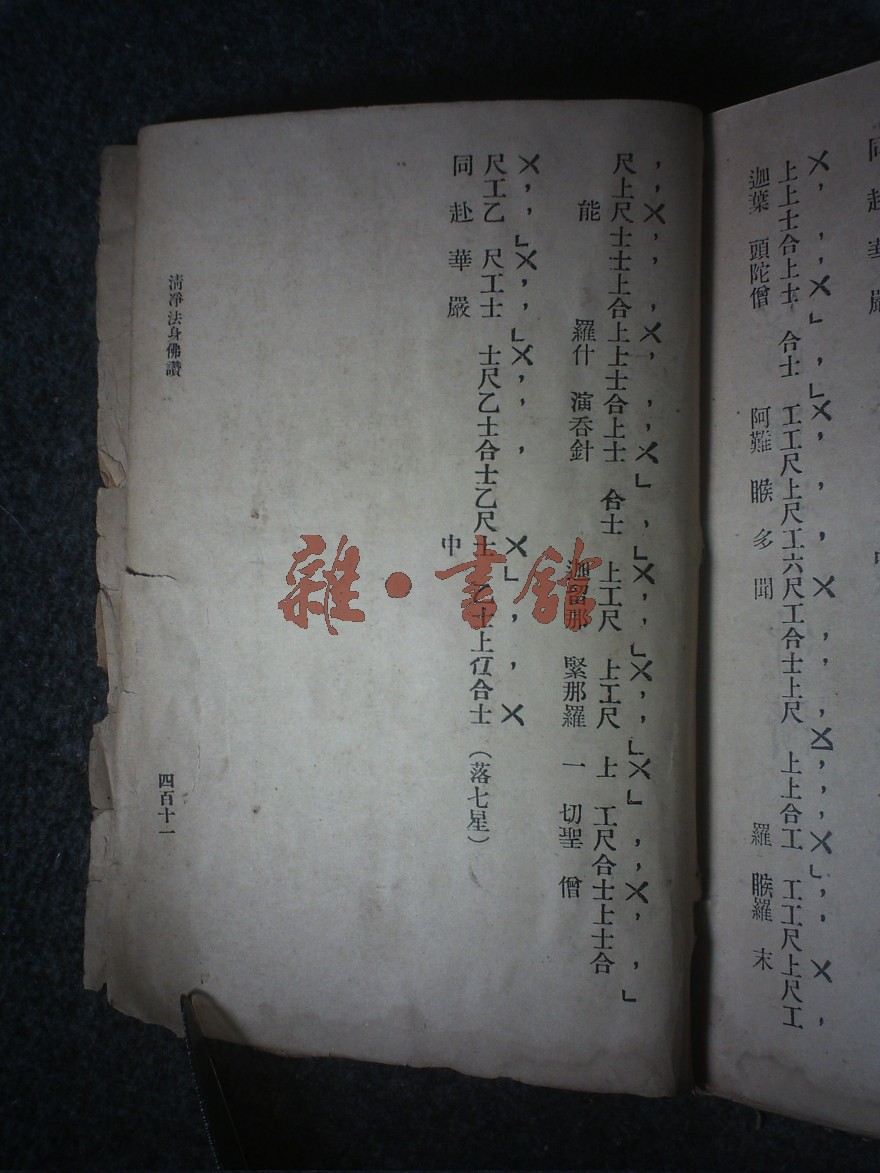 同赴華嚴
上上士合上士 合士 工工尺上尺工六尺工合士上尺 上上合工 工工尺上尺工
迦葉 頭陀僧 阿難 睺多聞 羅睺羅末
尺上尺士士上合上上士合上士 合士 上工尺 上工尺 上 工尺合士上士合
能 羅什 演吞針 迦留那 緊那羅 一切聖僧
尺工乙 尺工士 士尺乙士合士乙尺士 乙士上 合士（落七星）
同赴華嚴 中
清凈法身佛讚
四百十一
雜·書館